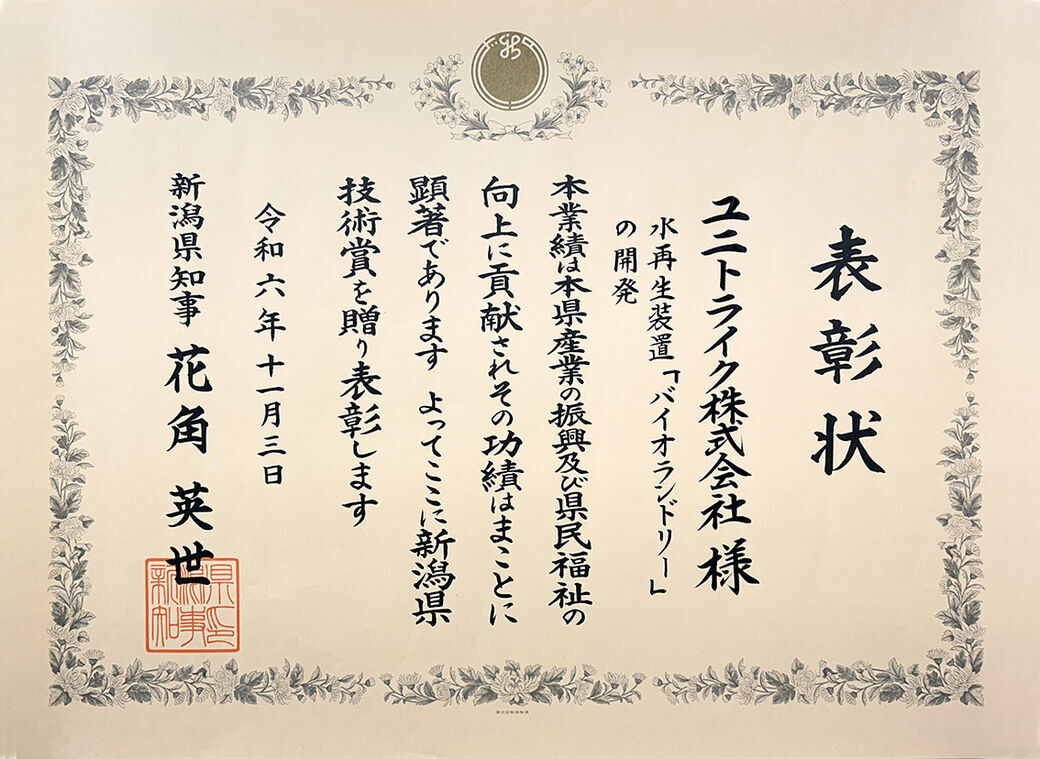 表彰状
ユニトライク株式会社 様
水再生装置「バイオランドリー」
の開発
本業績は本県産業の振興及び県民福祉の
向上に貢献されその功績はまことに
顕著であります よってここに新潟県
技術賞を贈り表彰します
令和六年十一月三日
新潟県知事 花角 英世
新潟県知事印